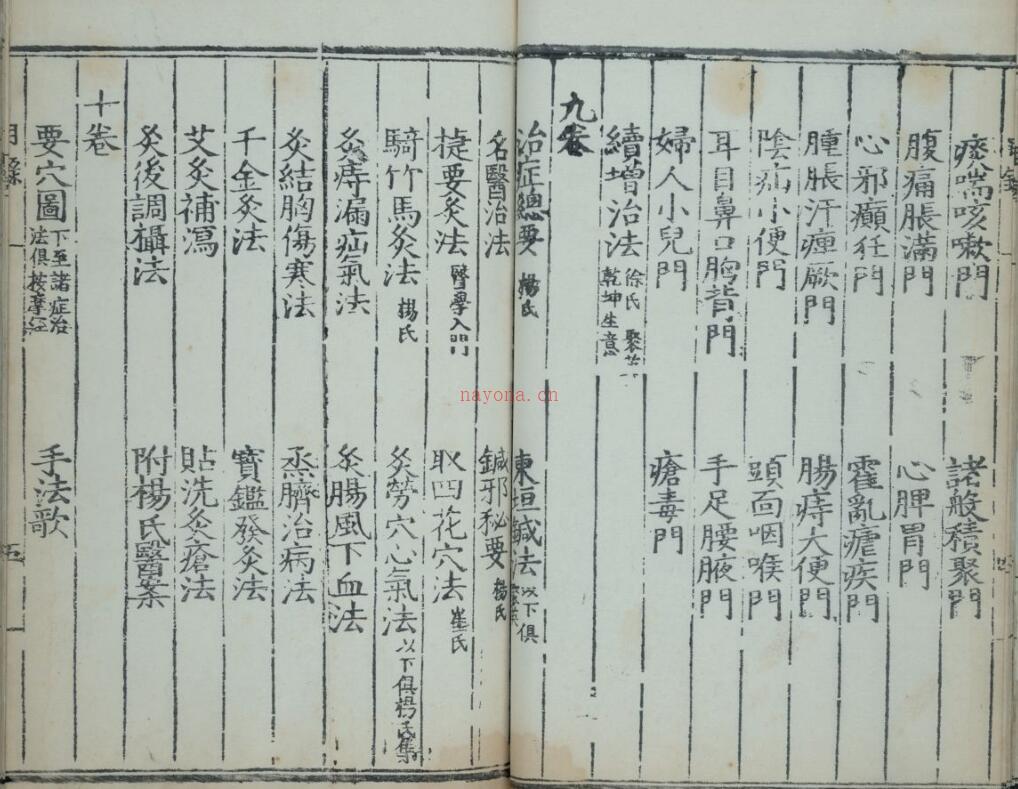 痰喘咳嗽門 諸般積聚門
腹痛脹滿門 心脾胃門
心邪癲狂門 霍亂瘧疾門
腫脹汗痙厥門 腸痔大便門
陰疝小便門 頭面咽喉門
耳目鼻口胸背門 手足腰腋門
婦人小兒門 瘡毒門
續增治法 徐氏 聚英
乾坤生意
九卷
治症總要 楊氏 東垣鍼法 以下俱
名醫治法 鍼邪秘要 楊氏
捷要灸法 醫學入門 取四花穴法 崔氏
騎竹馬灸法 楊氏 灸勞穴心氣法 以下俱楊氏集
灸痔漏疝氣法 灸腸風下血法
灸結胸傷寒法 烝臍治病法
千金灸法 寶鑑發灸法
艾灸補瀉 貼洗灸瘡法
灸後調攝法 附楊氏醫案
十卷
要穴圖 下至諸症治
法俱按摩經 手法歌
目錄
五
nayona.cn